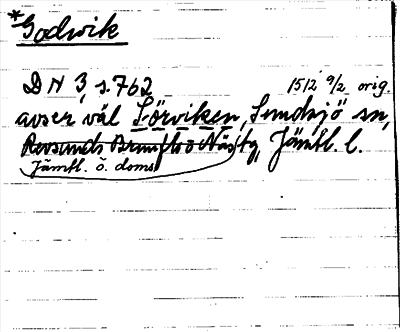 *Godwik
DN 3, s. 762 1512 9/2 orig.
avser väl Lörviken, Sundsjö sn,
Revsunds Brunflo o Näs tg, Jämtl. l.
Jämtl. ö. doms